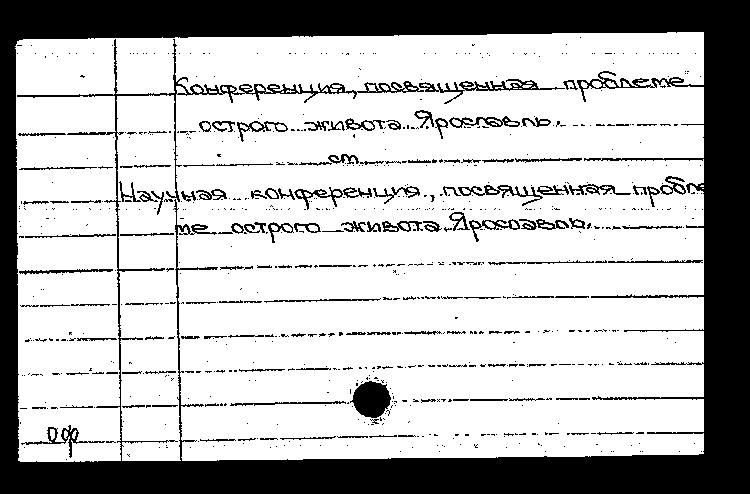 Конференция, посвященная проблеме
острого живота. Ярославль.
см.
Научная конференция, посвященная пробле
ме острого живота. Ярославль.
оф